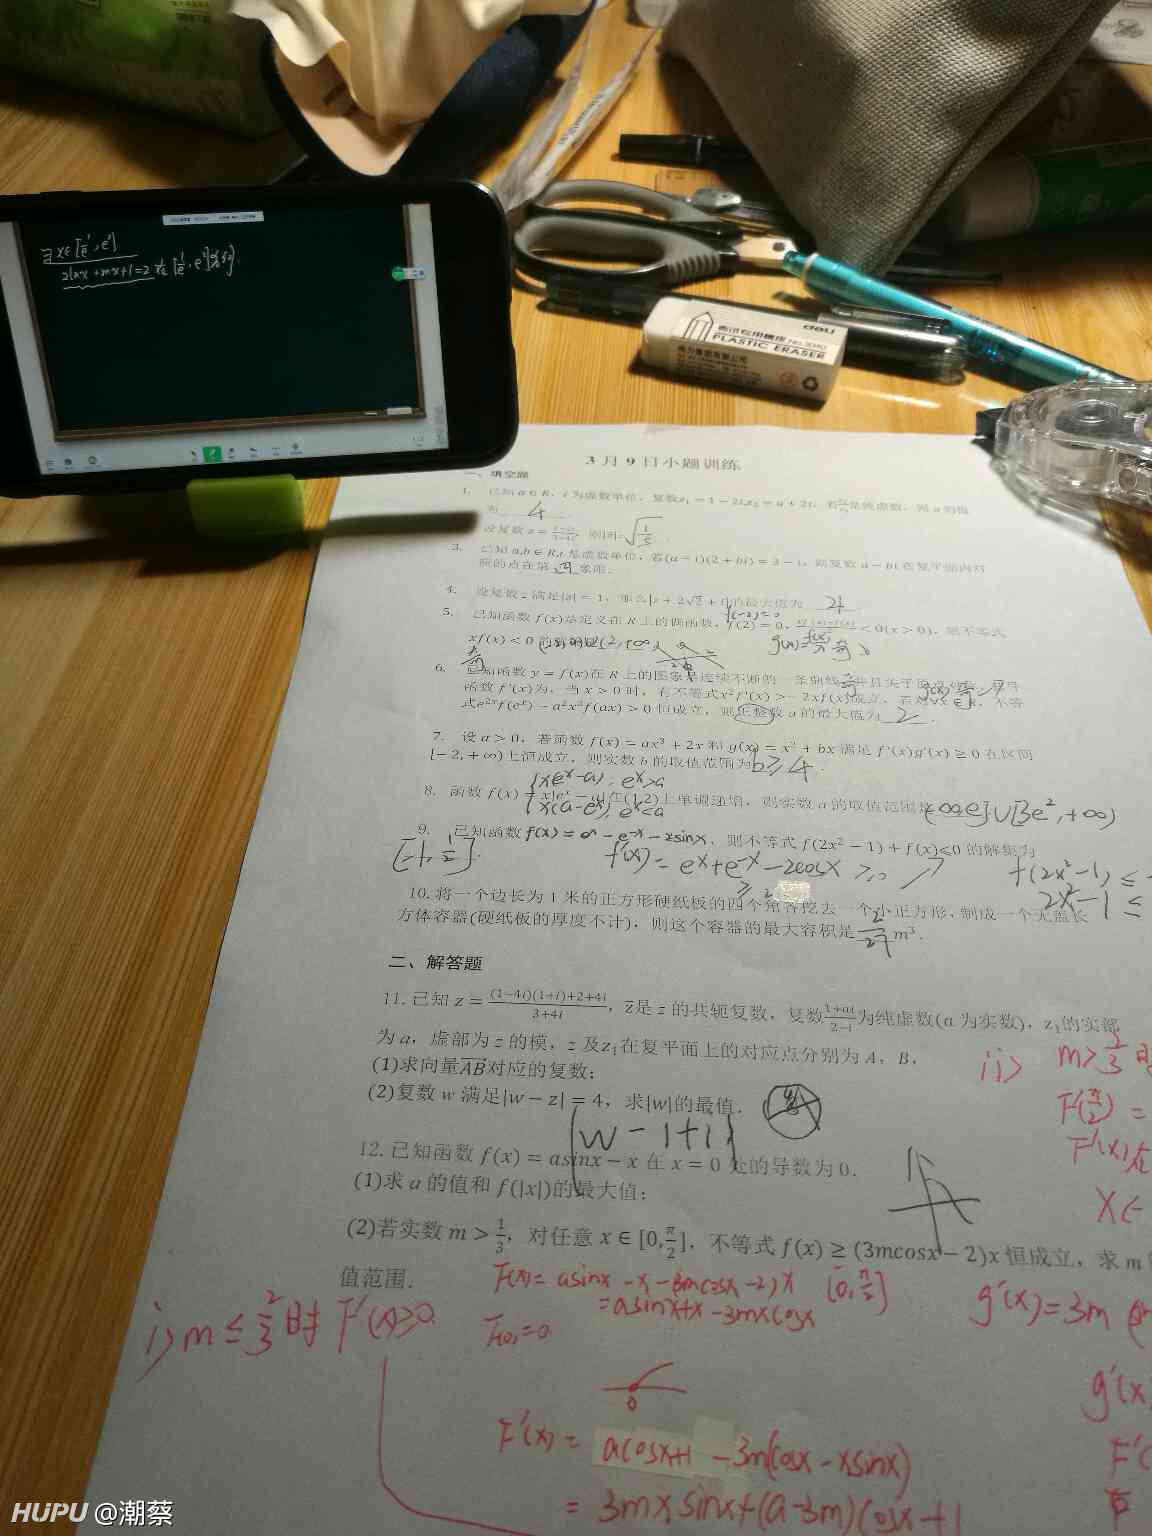 ∃x∈[1/e, e²]
2lnx+mx+1=2在[1/e, e²]
deli
考试专用橡皮 NO.3040
PLASTIC ERASER
3月9日小题训练
一、填空题
1. 已知a∈R，i为虚数单位，复数z₁=1-2i,z₂=a+2i，若 是纯虚数，则a的值
为 4
设复数z= ，则|z|=√(1/5)
3. 已知a,b∈R,i是虚数单位，若(a-i)(2+bi)=3-i，则复数a-bi在复平面内对
应的点在第 四 象限.
4. 设复数z满足|z|=1，那么|z+2√2+i|的最大值为 4
f(-2)=0
5. 已知函数f(x)是定义在R上的偶函数，f(2)=0， <0(x>0)，则不等式
xf(x)<0 ,+∞)
6. 已知函数y=f(x)在R上的图象是连续不断的一条曲线，并且关于原点对称，其导
函数f'(x)为，当x>0时，有不等式x²f'(x)>-2xf(x)成立，若对∀x∈R，不等
式e²ˣf(eˣ)-a²x²f(ax)>0恒成立，则正整数a的最大值为 2 .
7. 设a>0，若函数f(x)=ax³+2x和g(x)=x²+bx满足f'(x)g'(x)≥0在区间
[-2,+∞)上恒成立，则实数b的取值范围为 b≥4 .
{x(eˣ-a), eˣ>a
8. 函数f(x)=x|eˣ-a|在(1,2)上单调递增，则实数a的取值范围是(-∞,e]∪[3e²,+∞)
x(a-eˣ), eˣ<a
9. 已知函数f(x)=eˣ-e⁻ˣ-2sinx，则不等式f(2x²-1)+f(x)≤0的解集为
[-1, 1/2]. f'(x)=eˣ+e⁻ˣ-2cosx ≥0 ↗ f(2x²-1)≤
≥2 2x²-1≤
10. 将一个边长为1米的正方形硬纸板的四个角各挖去一个小正方形，制成一个无盖长
方体容器(硬纸板的厚度不计)，则这个容器的最大容积是 2/27 m³.
二、解答题
11. 已知z=((1-4i)(1+i)+2+4i)/(3+4i)，z̄是z的共轭复数，复数(1+ai)/(2-i)为纯虚数(a为实数)，z₁的实部
为a，虚部为z的模，z及z₁在复平面上的对应点分别为A，B，
(1)求向量AB对应的复数；
(2)复数w满足|w-z|=4，求|w|的最值.
|w-1+i|
12. 已知函数f(x)=asinx-x在x=0处的导数为0.
(1)求a的值和f(|x|)的最大值；
(2)若实数m>1/3，对任意x∈[0,π/2]，不等式f(x)≥(3mcosx-2)x恒成立，求m
值范围.
F(x)=asinx-x-(3mcosx-2)x [0,π/2]
=asinx+x-3mxcosx
F(0)=0
i) m≤2/3时 F'(x)≥0
0
F'(x)=acosx+1-3m(cosx-xsinx)
=3mxsinx+(a-3m)cosx+1
ii) m>2/3时
F(π/2)=
F'(x)在
x∈
g'(x)=3m
g'(x
F'(
HUPU @潮蔡